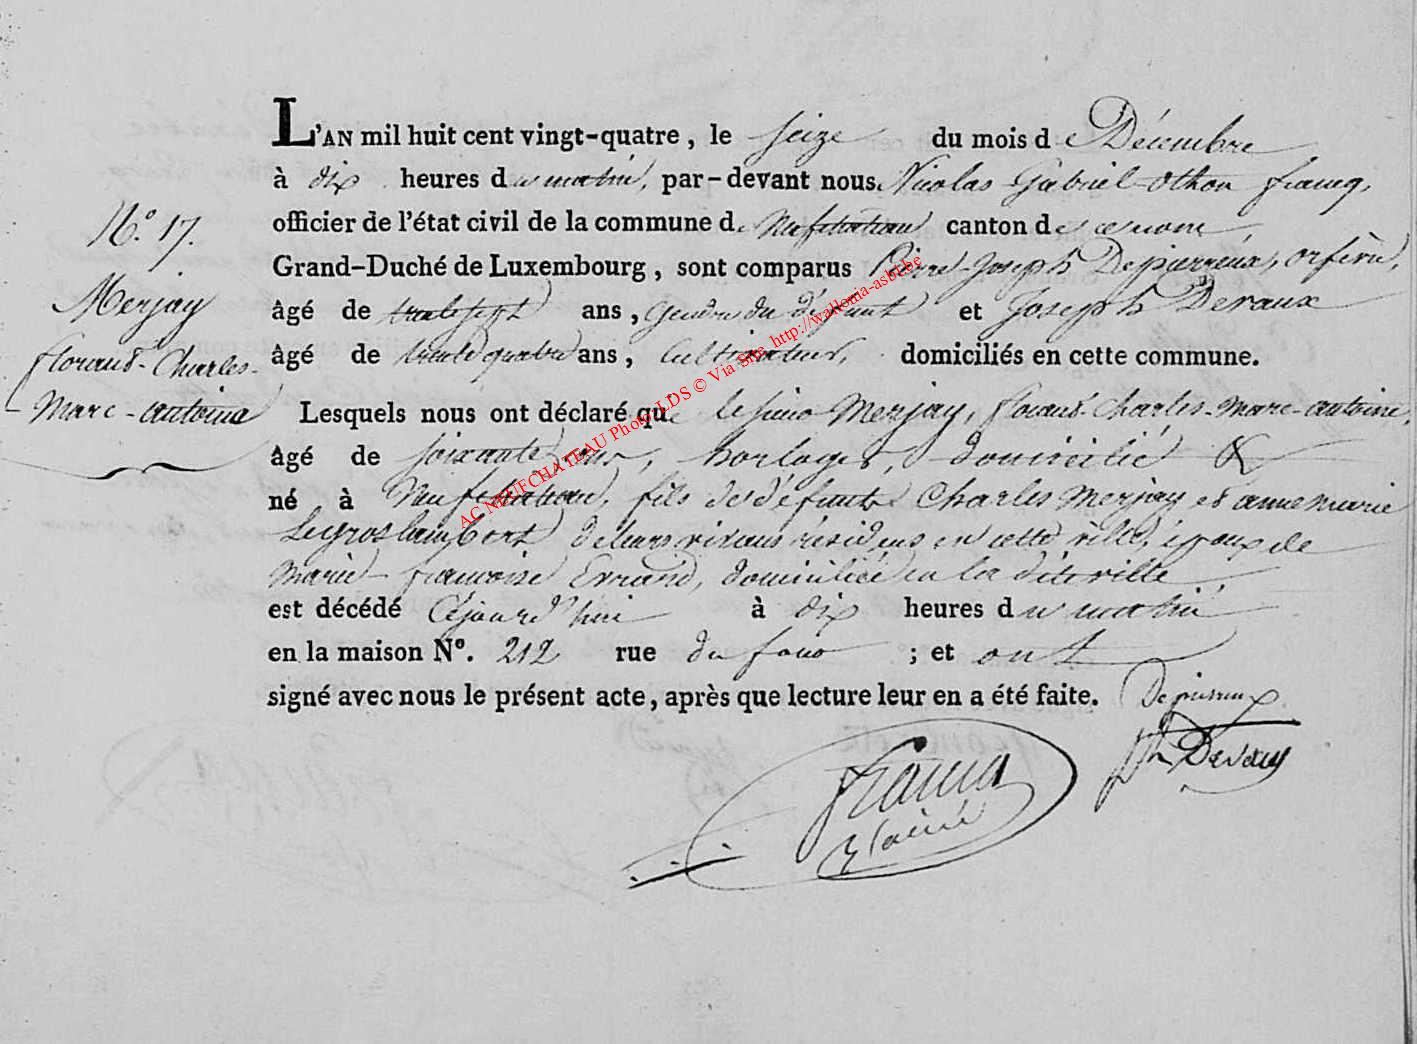 L'AN mil huit cent vingt-quatre, le seize du mois de Décembre
à dix heures du matin, par-devant nous Nicolas-Gabriel-Othon francq,
officier de l'état civil de la commune de Neufchateau canton de ce nom,
Grand-Duché de Luxembourg, sont comparus Pierre-Joseph Depierreux, orfèvre,
âgé de trente sept ans, Gendre du défunt et Joseph Devaux
âgé de trente quatre ans, Cultivateur, domiciliés en cette commune.
N.° 17.
Merjay
florend-Charles-
Marc-antoine
Lesquels nous ont déclaré que le sieur Merjay, florend-Charles-Marc-antoine,
âgé de soixante ans, horloger, domicilié &
né à Neufchateau, fils de défunts Charles Merjay et anne marie
Legroslambert de leurs vivans résidens en cette ville, époux de
Marie-francoise Evrard, domiciliée en la dite ville,
est décédé Cejourd'hui à dix heures du matin
en la maison N°. 212 rue du four ; et ont
signé avec nous le présent acte, après que lecture leur en a été faite. Depierreux
Devaux
francq
AC NEUFCHATEAU Photo LDS © Via Site http://wallonia-asbl.be